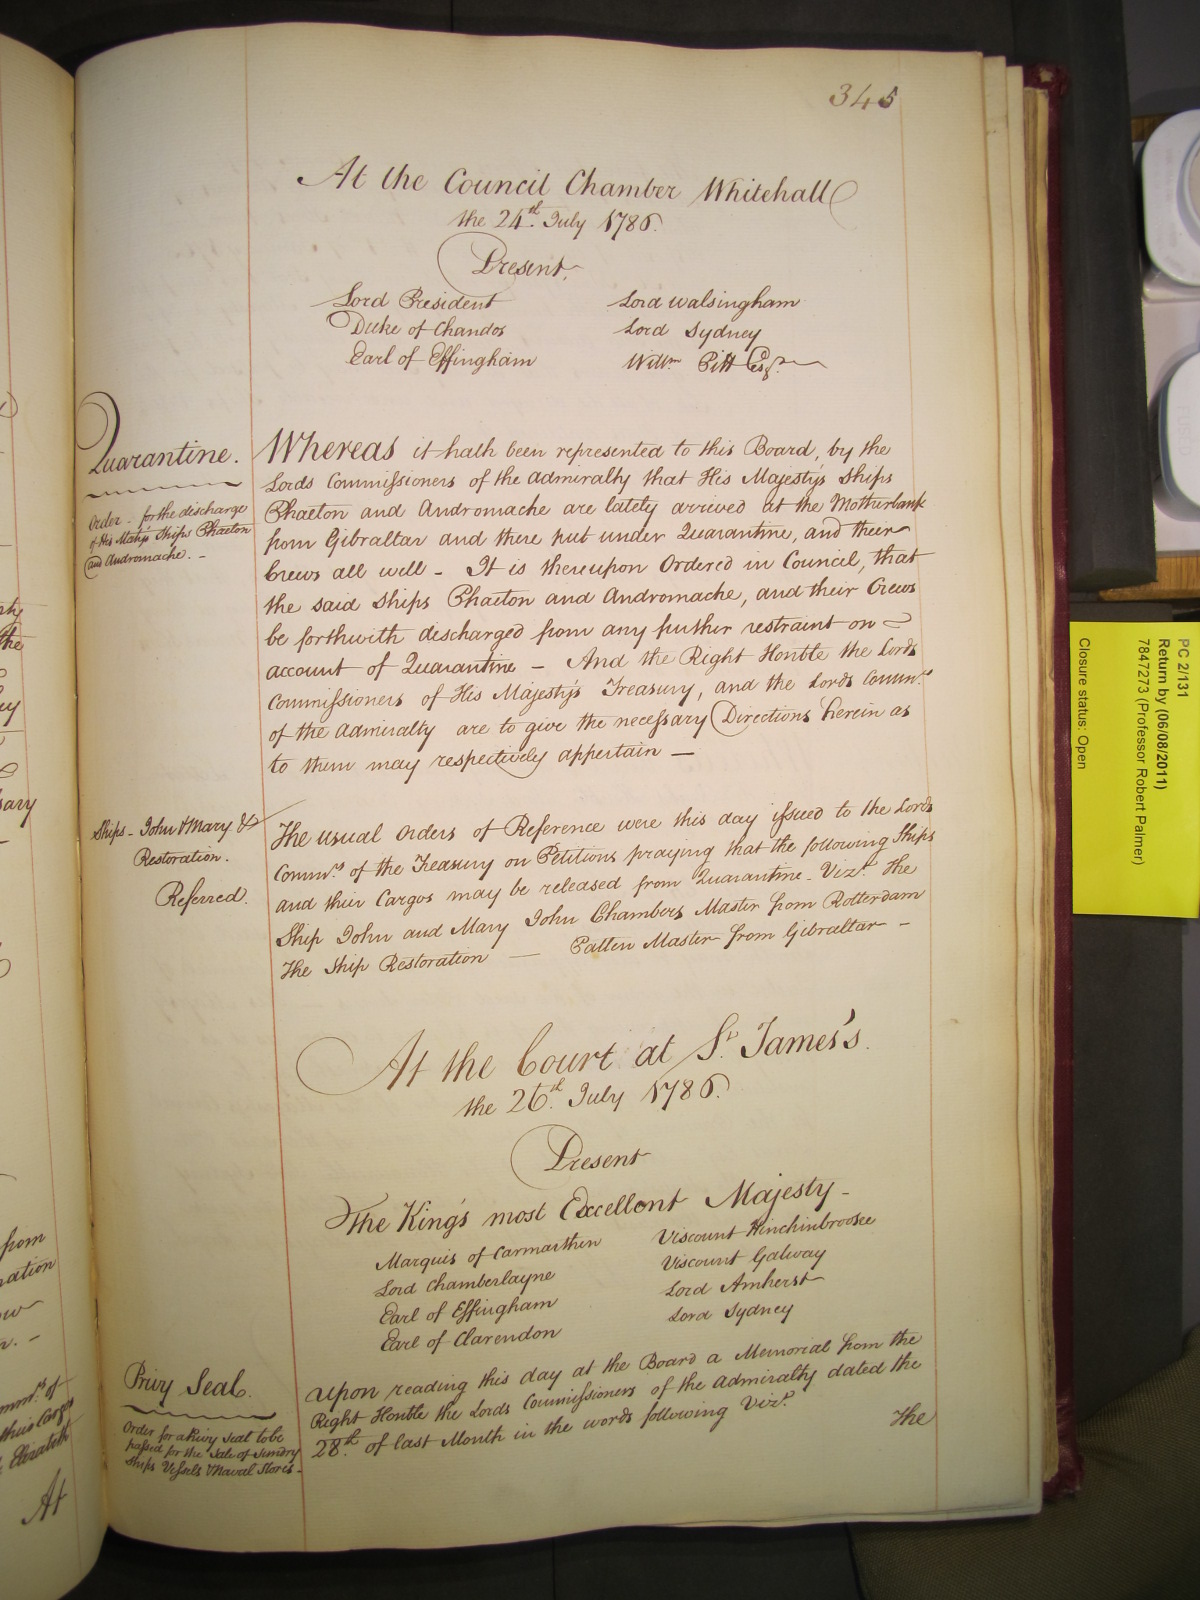 345
At the Council Chamber Whitehall
the 24th July 1786.
Present.
Lord President
Duke of Chandos
Earl of Effingham
Lord Walsingham
Lord Sydney
Willm Pitt Esqr.
Quarantine.
Order for the discharge
of His Majtys Ships Phaeton
and Andromache. -
Whereas it hath been represented to this Board, by the
Lords Commissioners of the Admiralty that His Majesty's Ships
Phaeton and Andromache are lately arrived at the Motherbank
from Gibraltar and there put under Quarantine, and their
Crews all well - It is thereupon Ordered in Council, that
the said Ships Phaeton and Andromache, and their Crews
be forthwith discharged from any further restraint on
account of Quarantine - And the Right Honble the Lords
Commissioners of His Majesty's Treasury, and the Lords Commrs.
of the Admiralty are to give the necessary Directions herein as
to them may respectively appertain -
Ships - John & Mary &
Restoration.
Referred.
The usual Orders of Reference were this day issued to the Lords
Commrs. of the Treasury on Petitions praying that the following Ships
and their Cargos may be released from Quarantine - Vizt. The
Ship John and Mary John Chambers Master from Rotterdam
The Ship Restoration — Patten Master from Gibraltar -
At the Court at St. James's.
the 26th. July 1786.
Present
The King's most Excellent Majesty -
Marquis of Carmarthen
Lord Chamberlayne
Earl of Effingham
Earl of Clarendon
Viscount Hinchinbrooke
Viscount Galway
Lord Amherst
Lord Sydney
Privy Seal.
Order for a Privy Seal to be
passed for the Sale of Sundry
Ships Vessels & Naval Stores -
Upon reading this day at the Board a Memorial from the
Right Honble the Lords Commissioners of the Admiralty dated the
28th. of last Month in the words following Vizt.
The
PC 2/131
Return by (06/08/2011)
7847273 (Professor Robert Palmer)
Closure status: Open
the
from
At